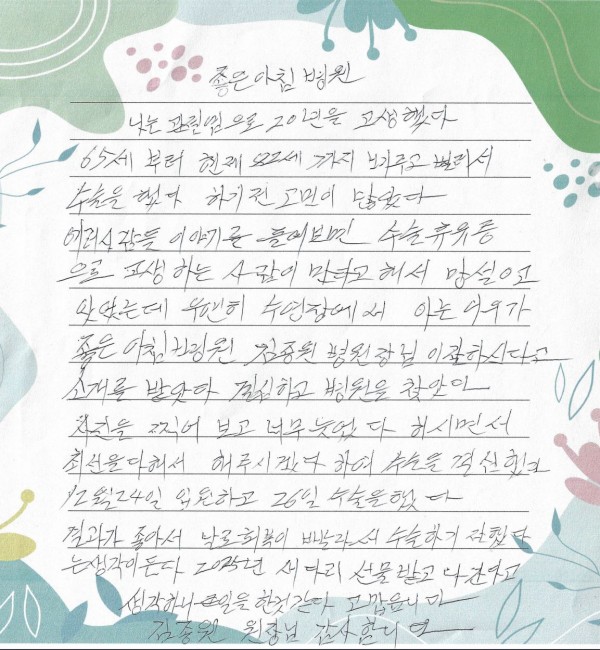 좋은아침 병원
나는 관절염으로 20년을 고생했다
65세 부터 현재 82세 까지 미루고 버텨서
수술을 했다 하기전 고민이 많았다
여러사람들 이야기를 들어보면 수술휴유증
으로 고생하는 사람이 만타고해서 망설이고
있었는데 우연히 수영장에서 아는 아우가
좋은아침병원 김종원 병원장님이 잘하신다고
소개를 받았다 결심하고 병원을 찾았다
사진을 찍어 보고 너무 늦었다 하시면서
최선을다해서 해주시겠다 하여 수술을 결심했다
12월24일 입원하고 26일 수술을했다
결과가 좋아서 날로회복이 빨라서 수술하기 잘했다
는생각이든다 2025년 새다리 선물받고 나간다고
생각하니 큰일을 한것같다 고맙습니다
김종원 원장님 감사합니다